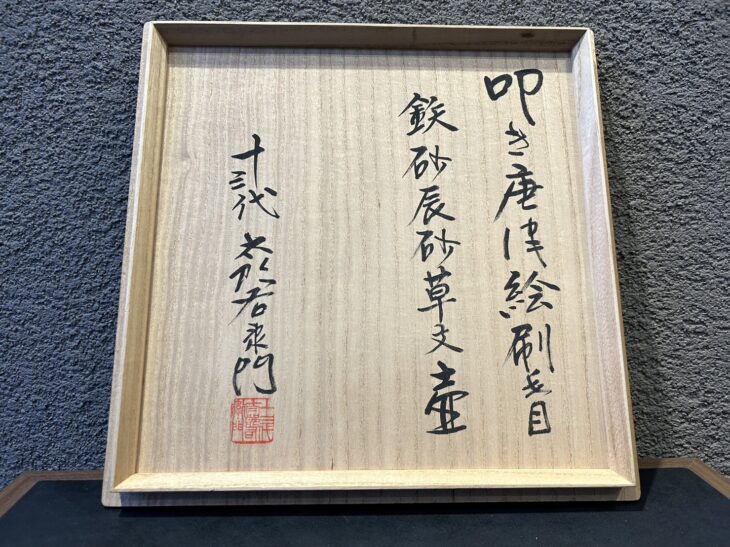 叩き唐津絵刷毛目
鉄砂辰砂草文壷
十三代 太郎右衛門